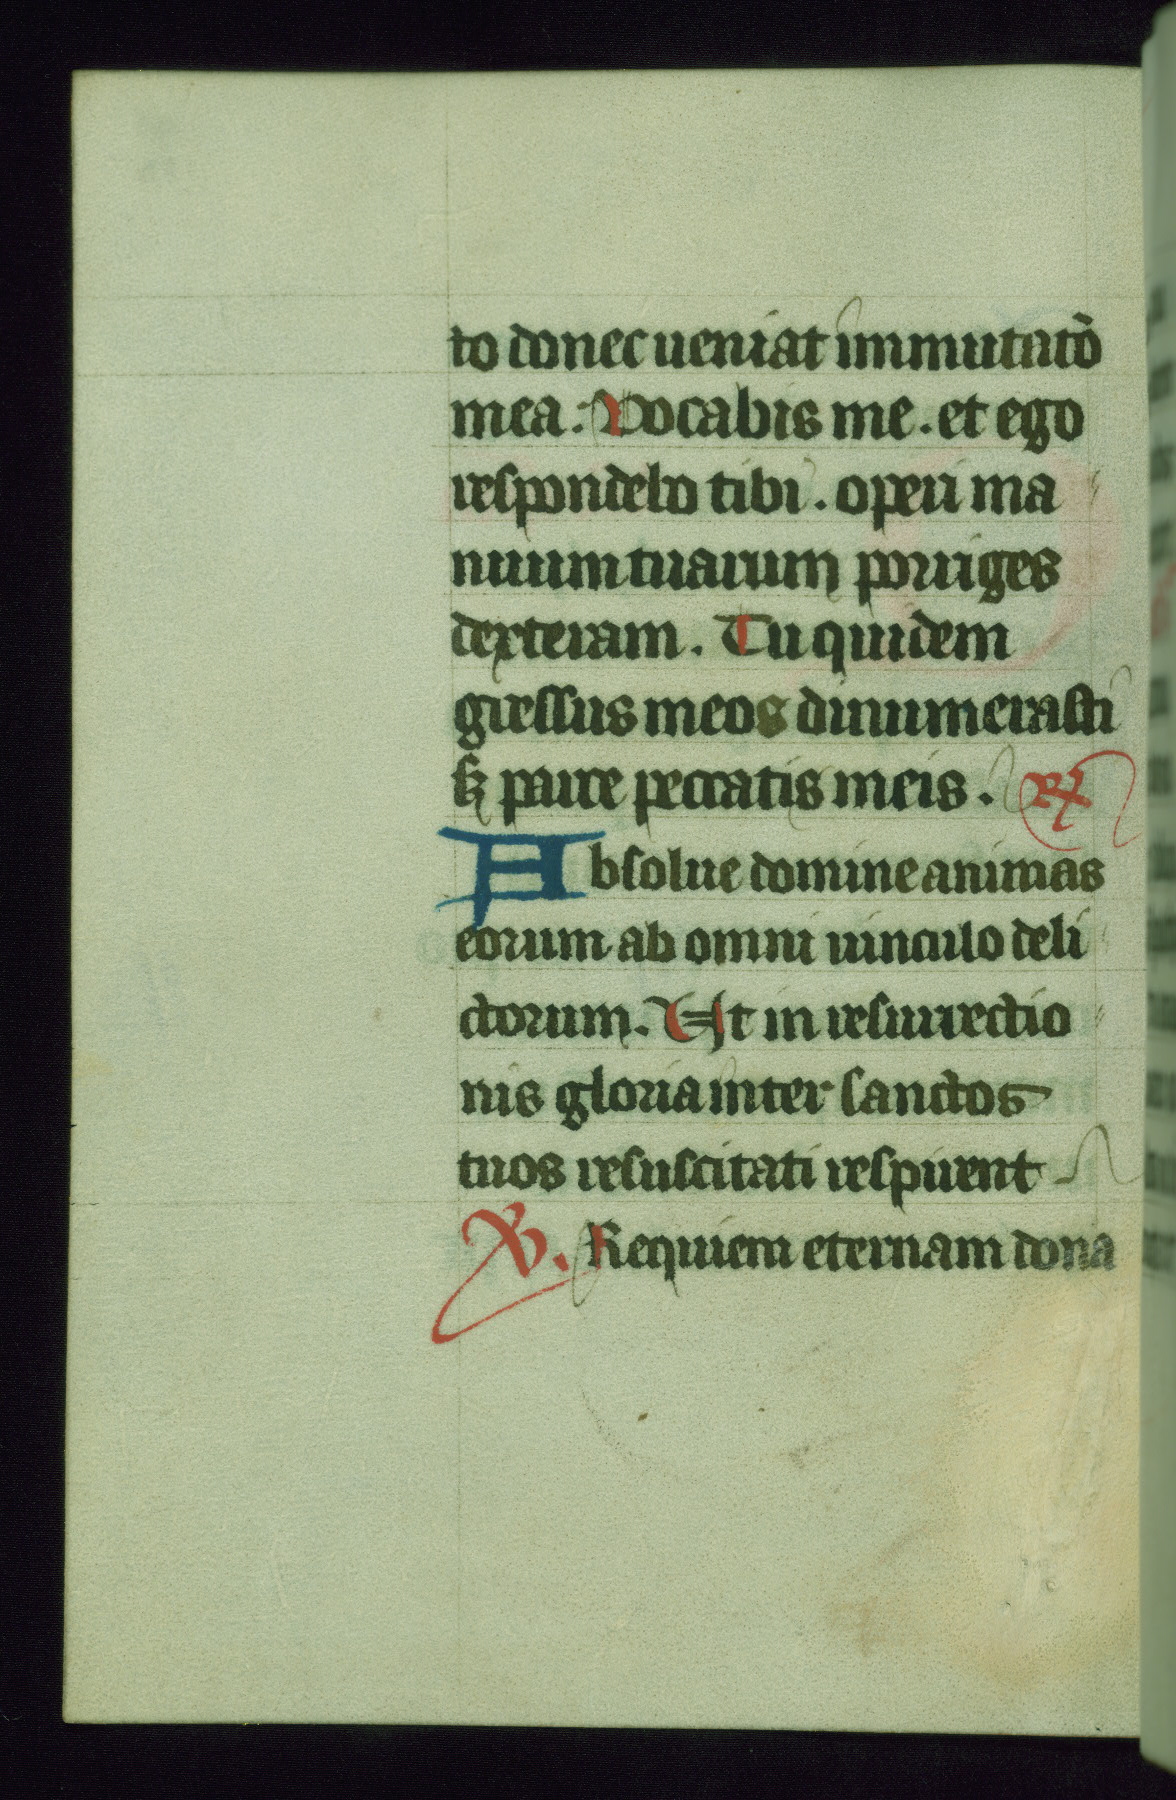 to donec ueniat immutatō
mea. Vocabis me. et ego
respondebo tibi. operi ma
nuum tuarum porriges
dexteram. Tu quidem
gressus meos dinumerasti
sꝫ parce peccatis meis. ℟
Absolue domine animas
eorum ab omni uinculo deli
ctorum. Ut in resurrectio
nis gloria inter sanctos
tuos resuscitati respirent
℣. Requiem eternam dona